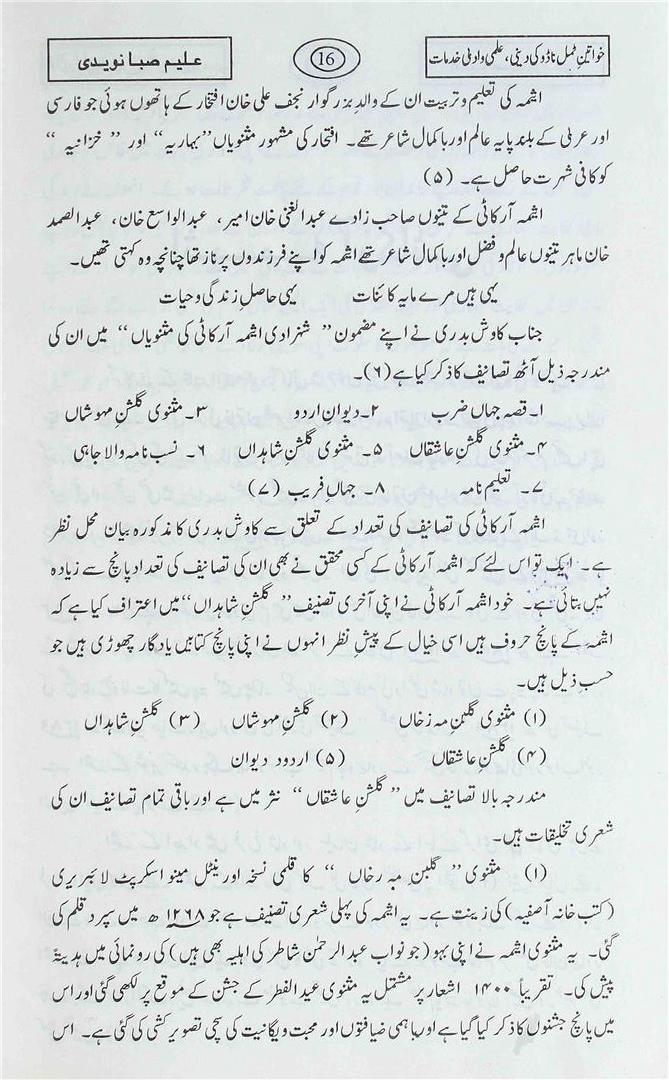 خواتینِ ٹمل ناڈو کی دینی، علمی و ادبی خدمات
16
علیم صبا نویدی
اشمہ کی تعلیم و تربیت ان کے والد بزرگوار نجف علی خان افتخار کے ہاتھوں ہوئی جو فارسی
اور عربی کے بلند پایہ عالم اور باکمال شاعر تھے۔ افتخار کی مشہور مثنویاں "بہاریہ" اور "خزانیہ"
کو کافی شہرت حاصل ہے۔ (۵)
اشمہ آرکاٹی کے تینوں صاحب زادے عبدالغنی خان امیر، عبدالواسع خان، عبدالصمد
خان ماہر تینوں عالم و فضل اور باکمال شاعر تھے اشمہ کو اپنے فرزندوں پر ناز تھا چنانچہ وہ کہتی تھیں۔
یہی ہیں مرے مایہ کائنات یہی حاصل زندگی و حیات
جناب کاوش بدری نے اپنے مضمون "شہزادی اشمہ آرکاٹی کی مثنویاں" میں ان کی
مندرجہ ذیل آٹھ تصانیف کا ذکر کیا ہے (۶)۔
۱۔ قصہ جہاں ضرب ۲۔ دیوانِ اردو ۳۔ مثنوی گلشنِ مہوشاں
۴۔ مثنوی گلشنِ عاشقاں ۵۔ مثنوی گلشنِ شاہداں ۶۔ نسب نامہ والا جاہی
۷۔ تعلیم نامہ ۸۔ جہاں فریب (۷)
اشمہ آرکاٹی کی تصانیف کی تعداد کے تعلق سے کاوش بدری کا مذکورہ بیان محل نظر
ہے۔ ایک تو اس لئے کہ اشمہ آرکاٹی کے کسی محقق نے بھی ان کی تصانیف کی تعداد پانچ سے زیادہ
نہیں بتائی ہے۔ خود اشمہ آرکاٹی نے اپنی آخری تصنیف "گلشنِ شاہداں" میں اعتراف کیا ہے کہ
اشمہ کے پانچ حروف ہیں اسی خیال کے پیشِ نظر انہوں نے اپنی پانچ کتابیں یادگار چھوڑی ہیں جو
حسبِ ذیل ہیں۔
(۱) مثنوی گلبنِ مہ رخاں (۲) گلشنِ مہوشاں (۳) گلشنِ شاہداں
(۴) گلشنِ عاشقاں (۵) اردود دیوان
مندرجہ بالا تصانیف میں "گلشنِ عاشقاں" نثر میں ہے اور باقی تمام تصانیف ان کی
شعری تخلیقات ہیں۔
(۱) مثنوی "گلبنِ مہ رخاں" کا قلمی نسخہ اورینٹل مینو اسکرپٹ لائبریری
(کتب خانہ آصفیہ) کی زینت ہے۔ یہ اشمہ کی پہلی شعری تصنیف ہے جو ۱۲۶۸ھ میں سپرد قلم کی
گئی۔ یہ مثنوی اشمہ نے اپنی بہو (جو نواب عبدالرحمٰن شاطر کی اہلیہ بھی ہیں) کی رونمائی میں ہدیۃً
پیش کی۔ تقریباً ۱۴۰۰ اشعار پر مشتمل یہ مثنوی عید الفطر کے جشن کے موقع پر لکھی گئی اور اس
میں پانچ جشنوں کا ذکر کیا گیا ہے اور باہمی ضیافتوں اور محبت و یگانیت کی سچی تصویر کشی کی گئی ہے۔ اس